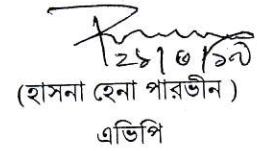 ২৯|৩|১৭
(হাসনা হেনা পারভীন )
এভিপি